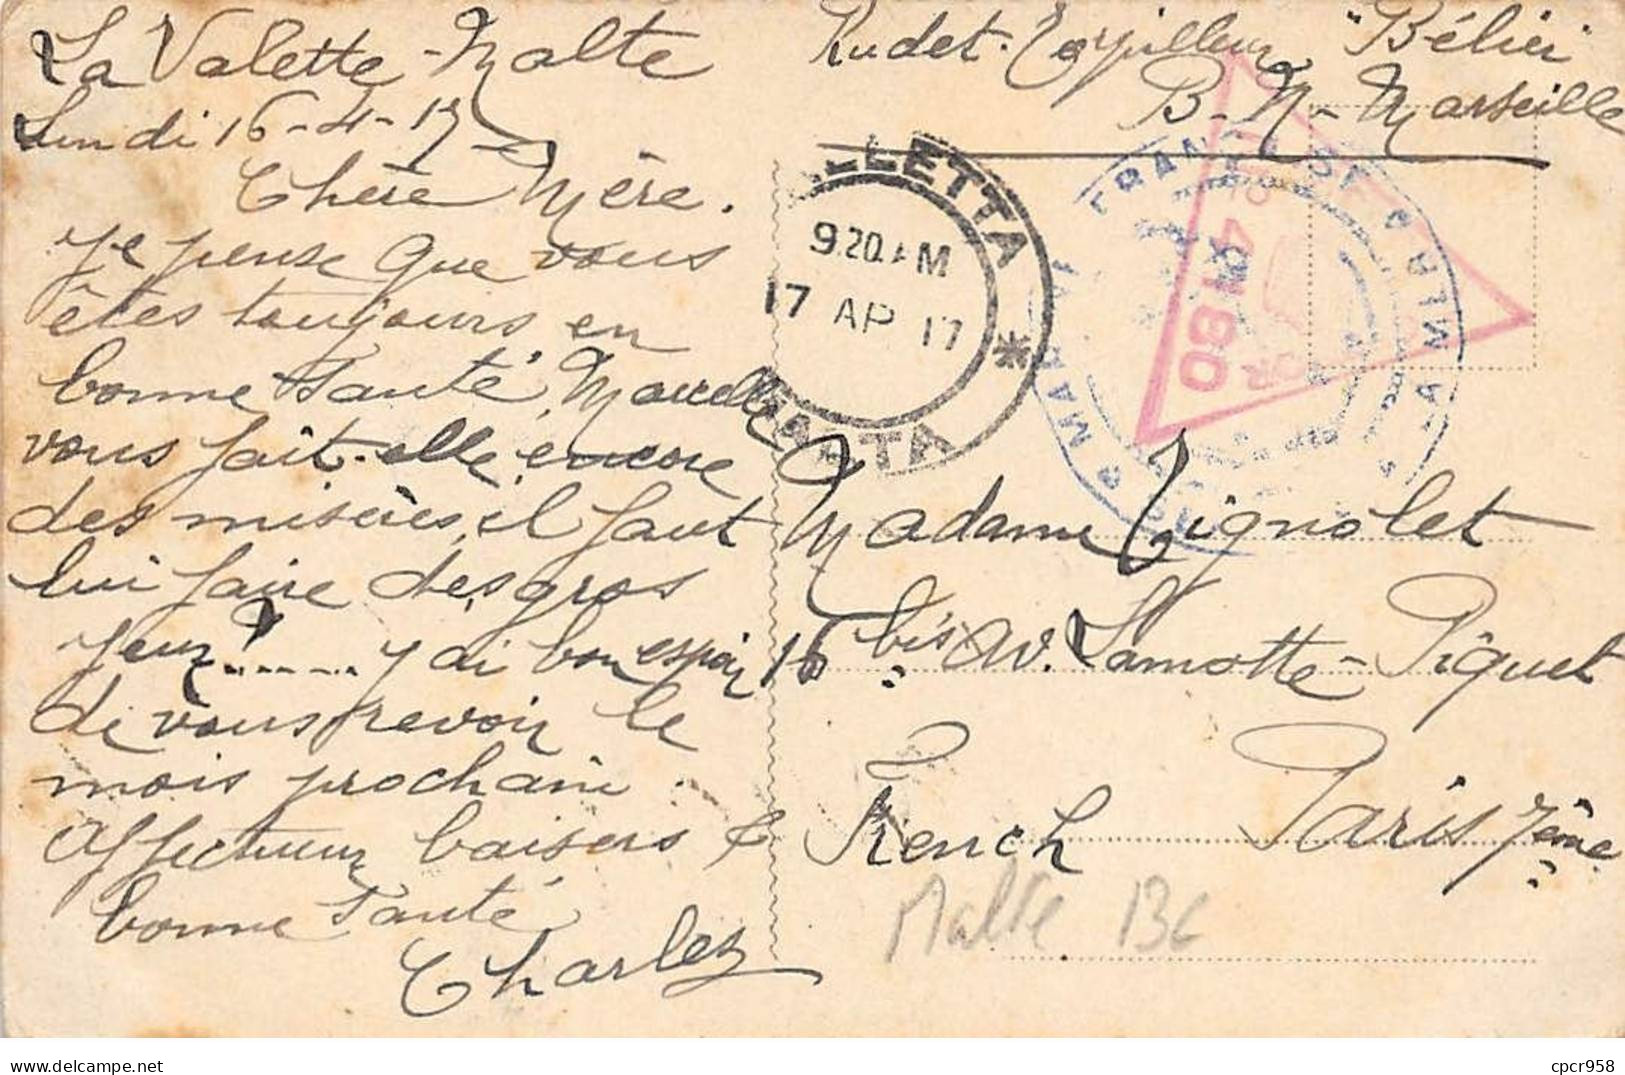 La Valette - Malte
Lundi 16-4-17
Chère Mère.
je pense que vous
êtes toujours en
bonne santé, Marcelle
vous fait-elle encore
des misères, il faut
lui faire des gros
yeux!...... j'ai bon espoir
de vous revoir le
mois prochain.
Affectueux baisers &
bonne santé
Charles
Rudet. Torpilleur "Bélier
B-N- Marseille
VALLETTA
9.20 AM
17 AP 17
MALTA
4180
Madame Vignolet
16 bis Av. Lamotte-Piquet
French Paris 7ème
Malte BC
cpcr958